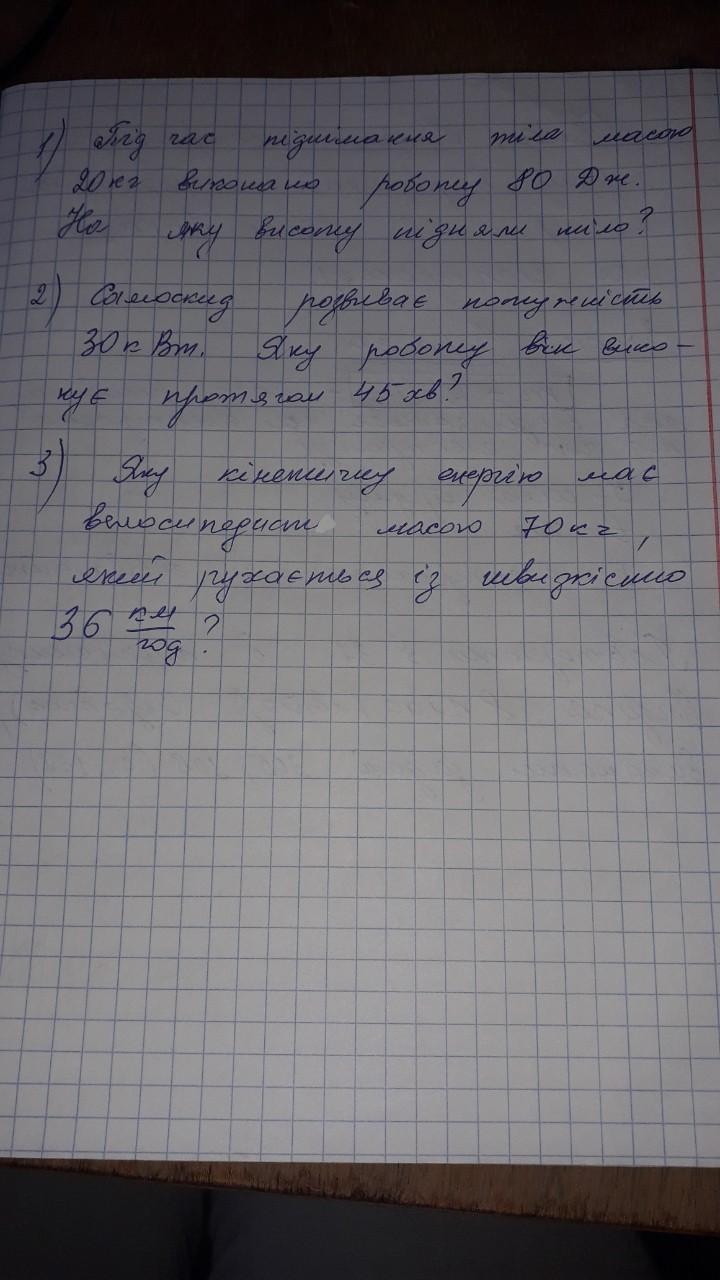 1) Під час піднімання тіла масою
20кг виконано роботу 80 Дж.
На яку висоту підняли тіло?
2) Самоскид розвиває потужність
30кВт. Яку роботу він вико-
нує протягом 45хв?
3) Яку кінетичну енергію має
велосипедист масою 70кг,
який рухається із швидкістю
36 км/год?